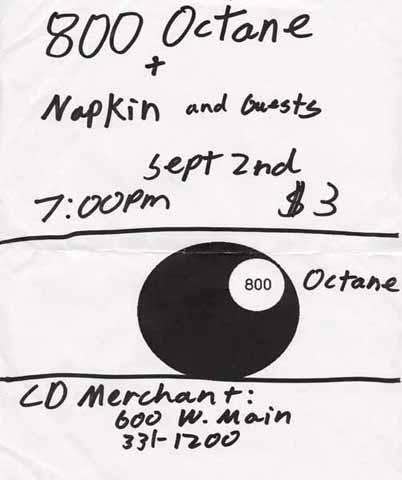 800 Octane
+
Napkin and Guests
Sept 2nd
7:00pm $3
800 Octane
CD Merchant:
600 W. Main
331-1200